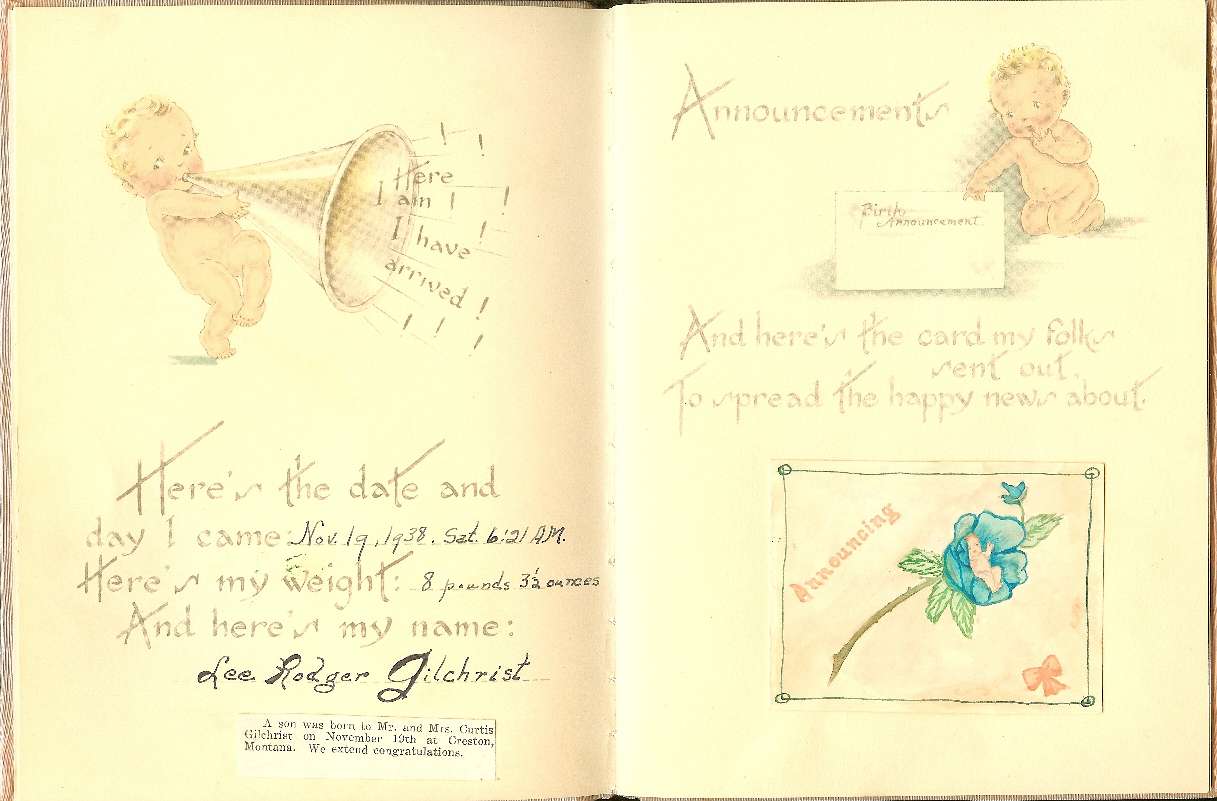 Here
I am !
I have
arrived !
Here's the date and
day I came: Nov. 19, 1938. Sat. 6:21 A.M.
Here's my weight: 8 pounds 3½ ounces
And here's my name:
Lee Rodger Gilchrist
A son was born to Mr. and Mrs. Curtis
Gilchrist on November 19th at Creston,
Montana. We extend congratulations.
Announcements
Birth
Announcement.
And here's the card my folks
sent out.
To spread the happy news about.
Announcing